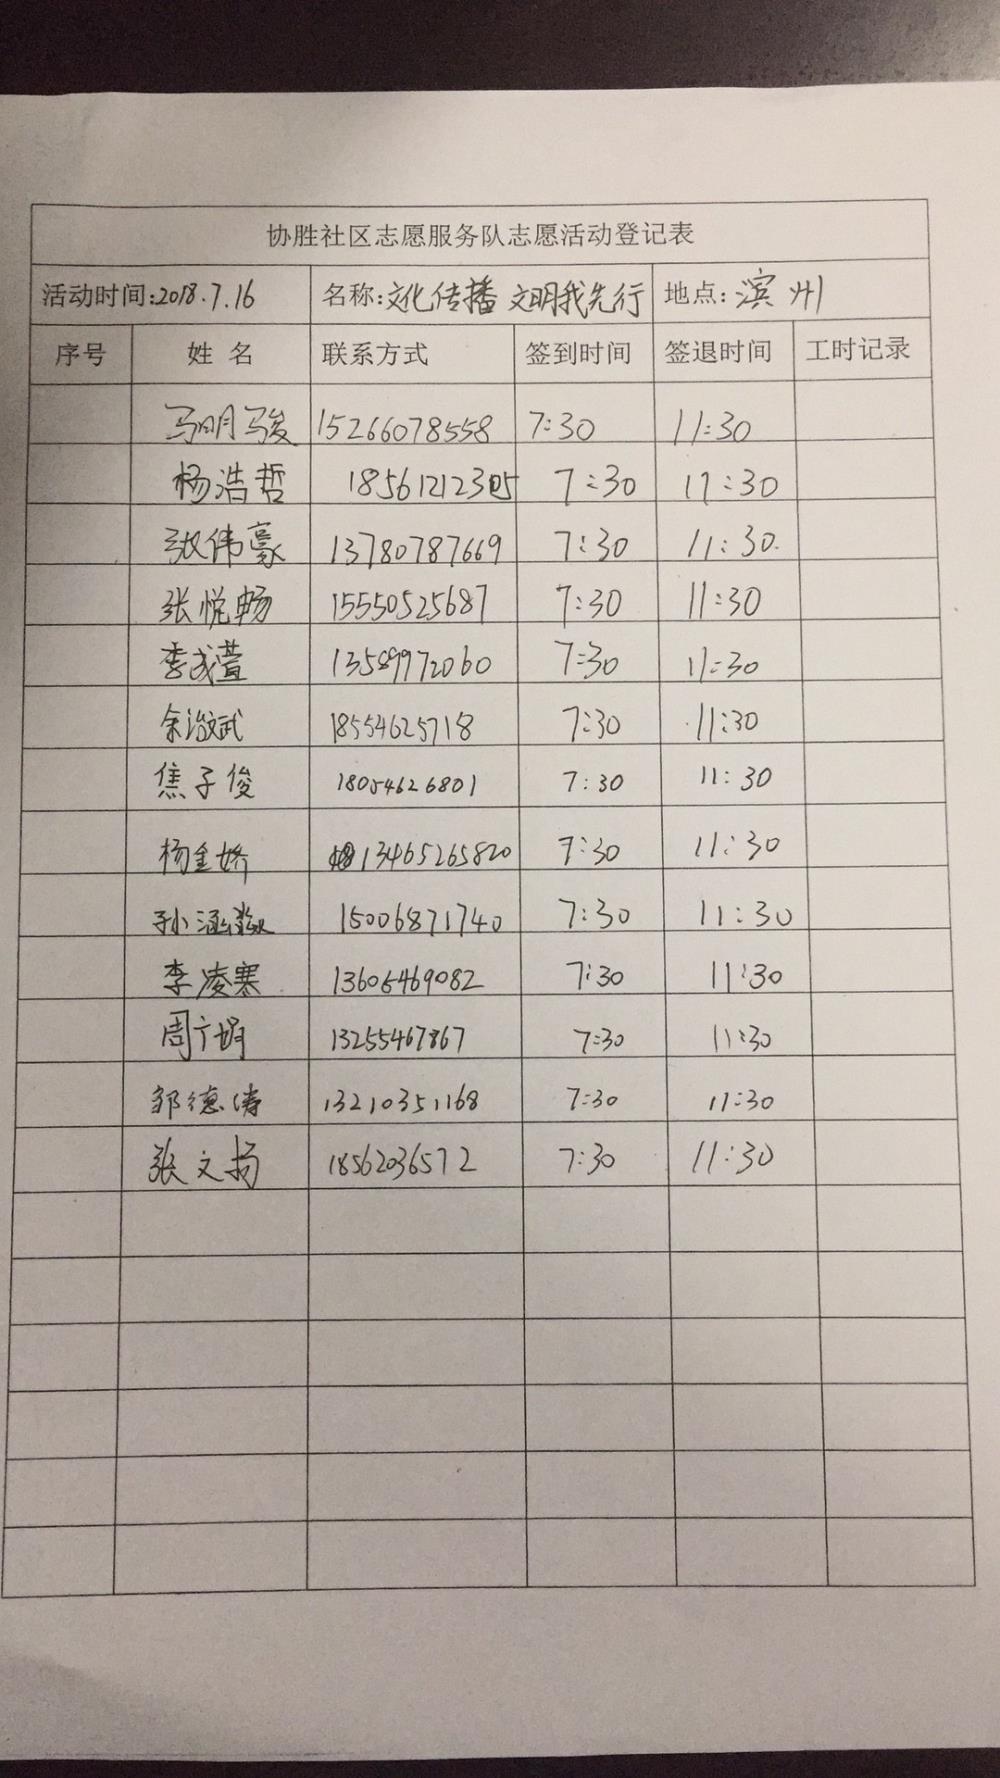 协胜社区志愿服务队志愿活动登记表
活动时间:2018.7.16 名称:文化传播 文明我先行 地点:滨州
序号 姓名 联系方式 签到时间 签退时间 工时记录
马明骏 15266078558 7:30 11:30
杨浩哲 18561212305 7:30 11:30
张伟豪 13780787669 7:30 11:30
张悦畅 15550525687 7:30 11:30
季成萱 13589972060 7:30 11:30
余滋武 18554625718 7:30 11:30
焦子俊 18054626801 7:30 11:30
杨金娇 13465265820 7:30 11:30
孙涵 15006871740 7:30 11:30
李凌寒 13605469082 7:30 11:30
周广娟 13255467867 7:30 11:30
邹德涛 13210351168 7:30 11:30
张文扬 18562036572 7:30 11:30